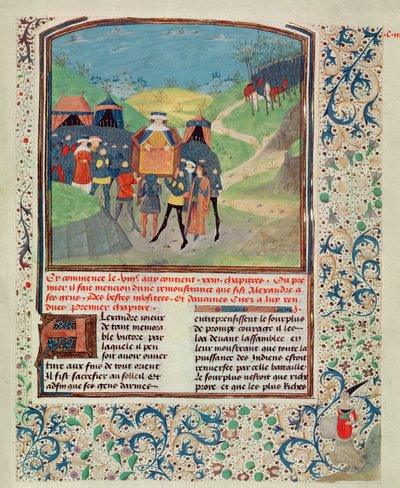 Cy commence le viiiᵉ. quy contient .xxiiⁱ. chapitres. Ou pre
mier il fait mencion dune remonstrance que fist Alexandre a
ses gens. Des bestes Et daucunes a luy ren
dues Premier chapitre.
Alexandre ioieux
de tant memora
ble victoire par
laquele il pen
soit avoir ouver
ture aux fins de tout orient
Il fist sacrefier au soleil Et
adfin que ses gens darmes
entrepreissent le sourplus
de prompt courage il les
loa devant lassamblee en
leur monstrant que toute la
puissance des Indiens estoit
renversee par celle bataille
le sourplus nestoit que riche
proye et que les plus riches